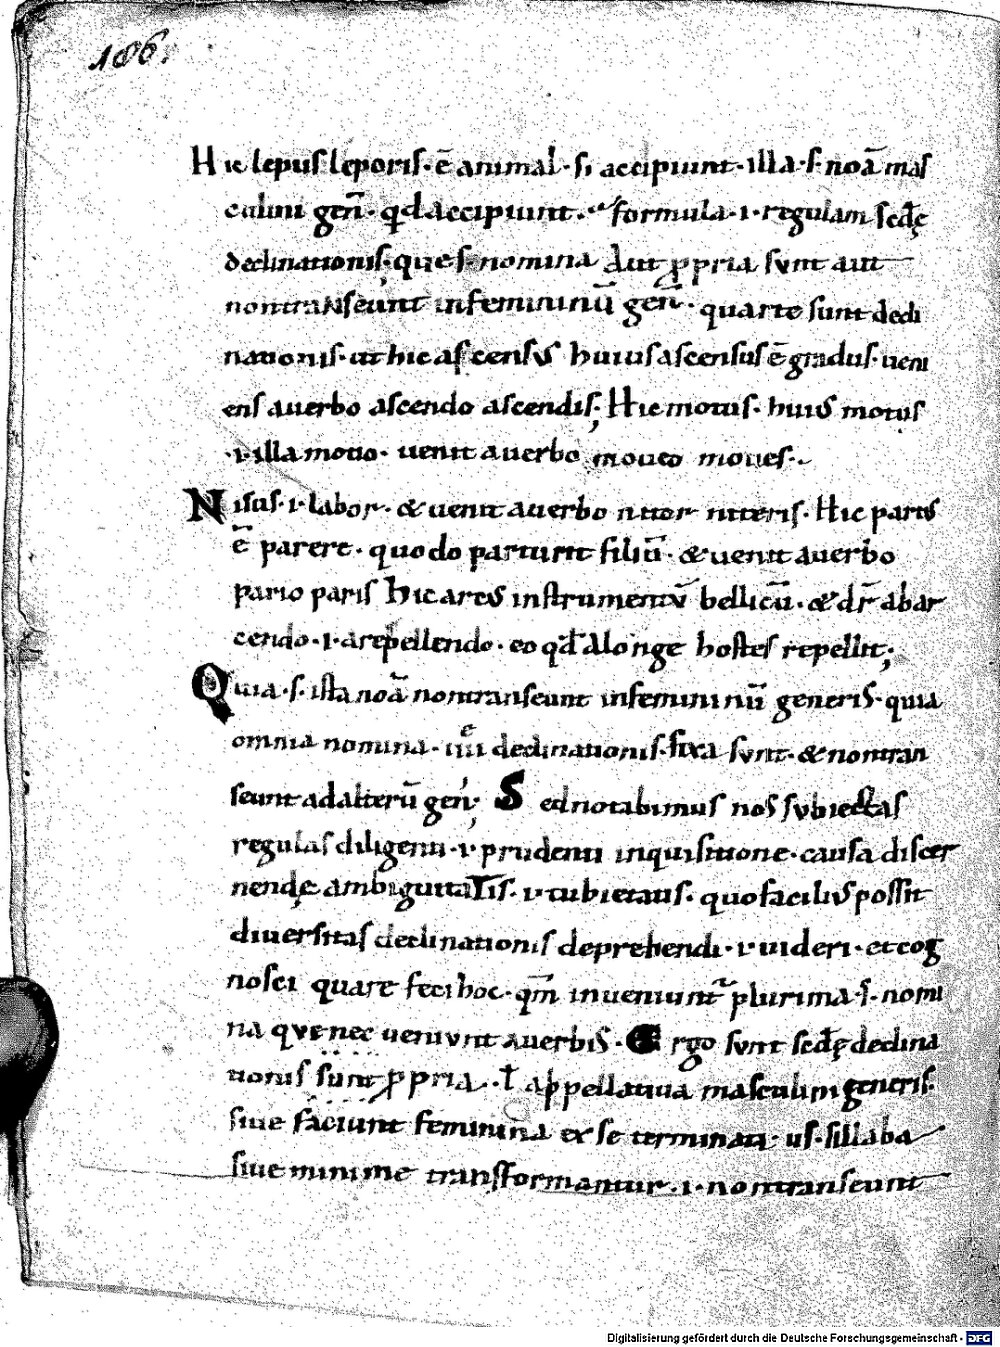 186.
Hic lepus leporis· ē animal· si accipiunt· illa· s· noā mas
culini geñ· qd accipiunt· formula· i· regulam scdę
declinationis· que s· nomina aut ꝓpria sunt aut
non transeunt in femininū geñ· quarte sunt decli
nationis· ut hic ascensus huius ascensus ē gradus· ueni
ens a uerbo ascendo ascendis; Hic motus· huius motus
·i· illa motio· uenit a uerbo moueo moues·
Nisus· i· labor· & uenit auerbo nitor niteris· Hic partus
ē parere· quodo parturit filiū· & uenit auerbo
pario paris Hic arcus instrumentū bellicū· & dr̄ abar
cendo· i· arepellendo· eo qd alonge hostes repellit;
Quia· s· ista noā non transeunt in femininū generis· quia
omnia nomina· iiii declinationis· fixa sunt· & non tran
seunt ad alterū geñ; Sed notabimus nos subiectas
regulas diligenti· i· prudenti inquisitione· causa discer
nendę ambiguitatis· i· dubietatis· quo facilius possit
diuersitas declinationis deprehendi· i· uideri· et cog
nosci quare feci hoc· qm̄ inueniunt̄ plurima· s· nomi
na que nec ueniunt auerbis· Ergo sunt scdę declina
tionis sunt ꝓpria· ł appellatiua masculini generis·
siue faciunt feminina ex se terminati· us· sillaba
siue minime transformantur· i· non transeunt
Digitalisierung gefördert durch die Deutsche Forschungsgemeinschaft - DFG